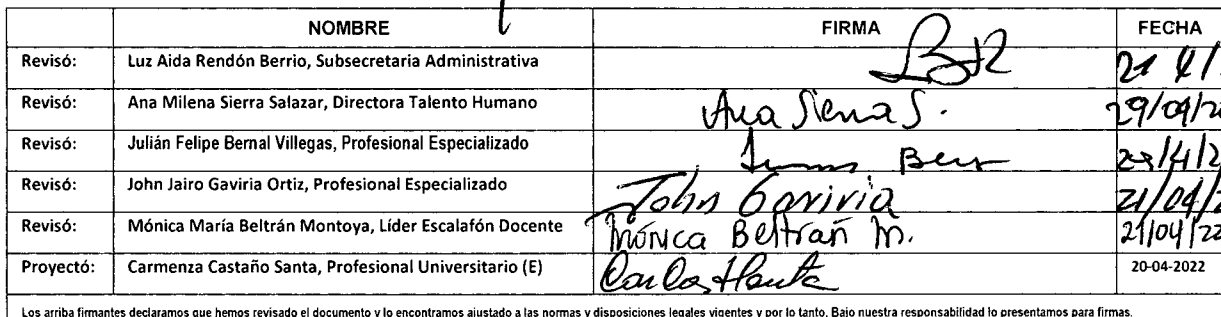 NOMBRE FIRMA FECHA
Revisó: Luz Aida Rendón Berrio, Subsecretaria Administrativa
Revisó: Ana Milena Sierra Salazar, Directora Talento Humano Ana Sierra S.
Revisó: Julián Felipe Bernal Villegas, Profesional Especializado
Revisó: John Jairo Gaviria Ortiz, Profesional Especializado John Gaviria 21/04/2
Revisó: Mónica María Beltrán Montoya, Líder Escalafón Docente Mónica Beltrán M. 21/04/22
Proyectó: Carmenza Castaño Santa, Profesional Universitario (E) 20-04-2022
Los arriba firmantes declaramos que hemos revisado el documento y lo encontramos ajustado a las normas y disposiciones legales vigentes y por lo tanto, Bajo nuestra responsabilidad lo presentamos para firmas.